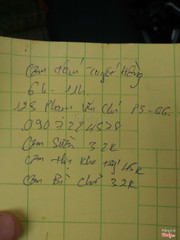 Cơm tấm Tuyết Hồng
6h - 11h
125 Phạm Văn Chí P3-Q6.
090 7 22 4578
Cơm Sườn 32K
Cơm thịt kho trứng 16K
Cơm Bì chả 32K